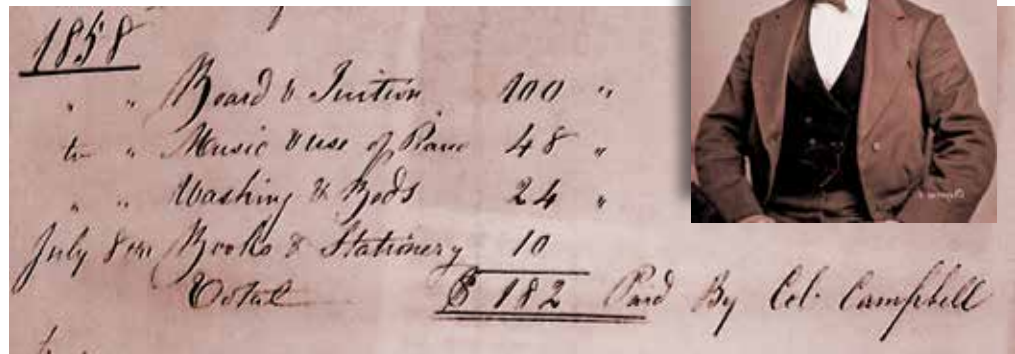 1858
" " Board & Tuition 100 "
to " Music & use of Piano 48 "
" " Washing & Beds 24 "
July 8 Books & Stationery 10
Total $ 182 Paid By Col. Campbell